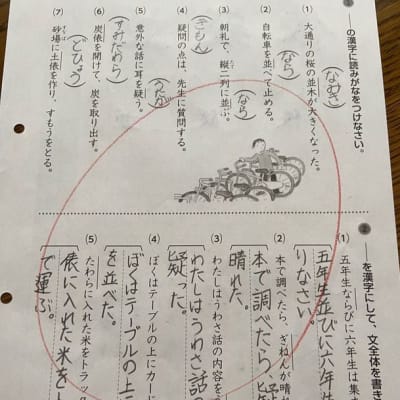 の漢字に読みがなをつけなさい。
(1) 大通りの桜の並木が大きくなった。
(なみき)
(2) 自転車を並べて止める。
(なら)
(3) 朝礼で、縦二列に並ぶ。
(なら)
(4) 疑問の点は、先生に質問する。
(ぎもん)
(5) 意外な話に耳を疑う。
(うたが)
(6) 炭俵を開けて、炭を取り出す。
(すみだわら)
(7) 砂場に土俵を作り、すもうをとる。
(どひょう)
を漢字にして、文全体を書き
(1) 五年生ならびに六年生は集ま
五年生並びに六年生
りなさい。
(2) 本で調べたら、ぎねんが晴れ
本で調べたら、疑
晴れた。
(3) わたしはうわさ話の内容を
わたしはうわさ話の
疑った。
(4) ぼくはテーブルの上にカー
ぼくはテーブルの上
を並べた。
(5) たわらに入れた米をトラッ
俵に入れた米を
で運ぶ。